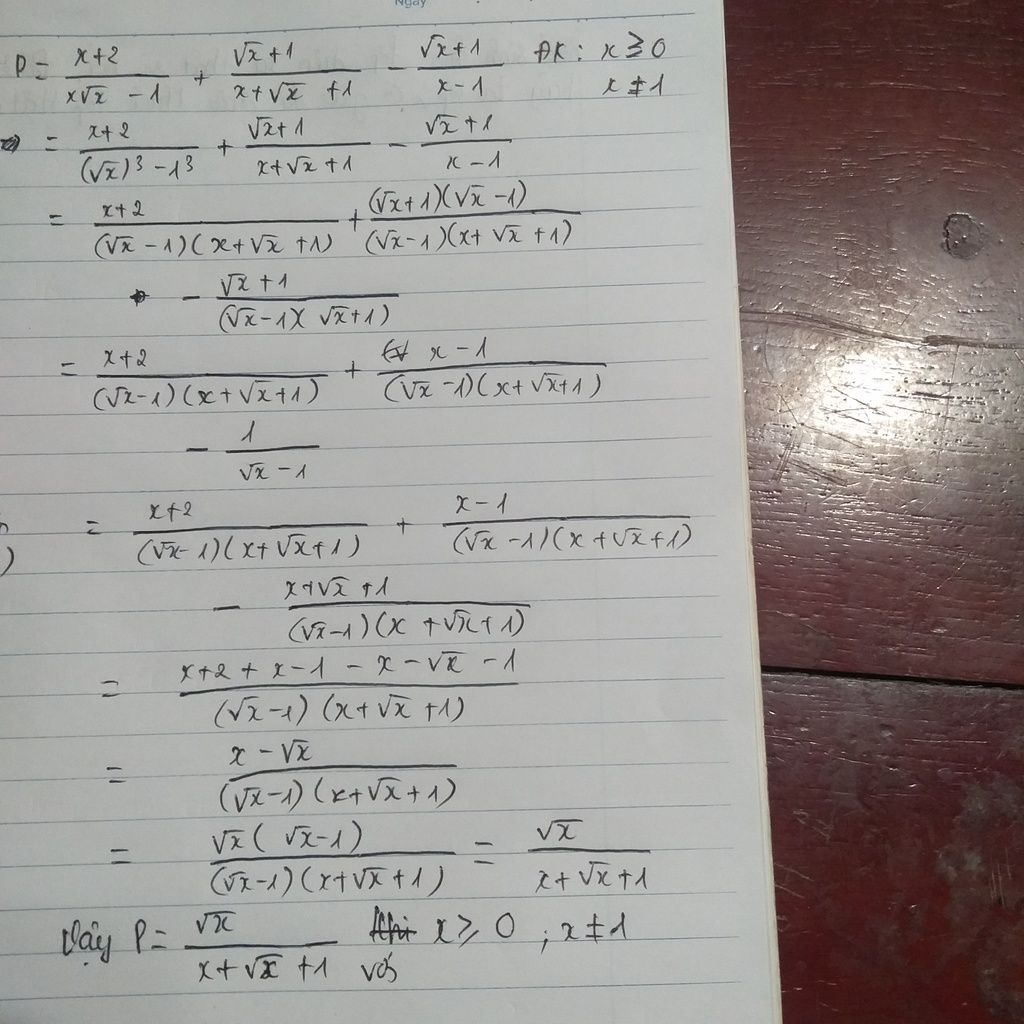 Ngày
P = \frac{x+2}{x\sqrt{x} - 1} + \frac{\sqrt{x}+1}{x+\sqrt{x}+1} - \frac{\sqrt{x}+1}{x-1} ĐK: x ≥ 0
x ≠ 1
= \frac{x+2}{(\sqrt{x})^3 - 1^3} + \frac{\sqrt{x}+1}{x+\sqrt{x}+1} - \frac{\sqrt{x}+1}{x-1}
= \frac{x+2}{(\sqrt{x}-1)(x+\sqrt{x}+1)} + \frac{(\sqrt{x}+1)(\sqrt{x}-1)}{(\sqrt{x}-1)(x+\sqrt{x}+1)}
- \frac{\sqrt{x}+1}{(\sqrt{x}-1)(\sqrt{x}+1)}
= \frac{x+2}{(\sqrt{x}-1)(x+\sqrt{x}+1)} + \frac{x-1}{(\sqrt{x}-1)(x+\sqrt{x}+1)}
- \frac{1}{\sqrt{x}-1}
= \frac{x+2}{(\sqrt{x}-1)(x+\sqrt{x}+1)} + \frac{x-1}{(\sqrt{x}-1)(x+\sqrt{x}+1)}
- \frac{x+\sqrt{x}+1}{(\sqrt{x}-1)(x+\sqrt{x}+1)}
= \frac{x+2+x-1-x-\sqrt{x}-1}{(\sqrt{x}-1)(x+\sqrt{x}+1)}
= \frac{x-\sqrt{x}}{(\sqrt{x}-1)(x+\sqrt{x}+1)}
= \frac{\sqrt{x}(\sqrt{x}-1)}{(\sqrt{x}-1)(x+\sqrt{x}+1)} = \frac{\sqrt{x}}{x+\sqrt{x}+1}
Vậy P = \frac{\sqrt{x}}{x+\sqrt{x}+1} với x ≥ 0 ; x ≠ 1